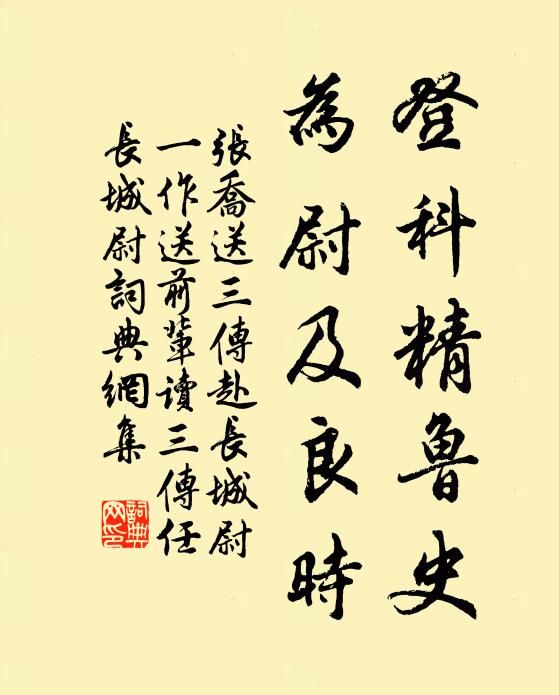 登科精魯史
為尉及良時
張喬送三傳赴長城尉
一作送前輩讀三傳任
長城尉詞典網集
詞典
网印